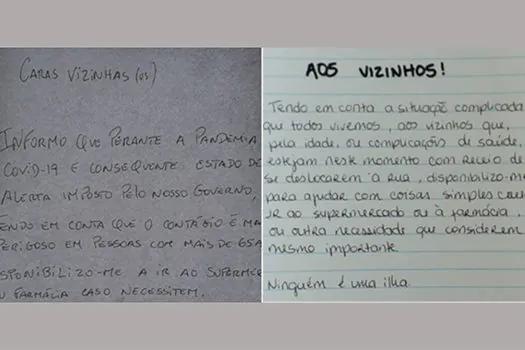 CARAS VIZINHAS (OS)
INFORMO QUE PERANTE A PANDEMIA
COVID-19 E CONSEQUENTE ESTADO DE
ALERTA IMPOSTO PELO NOSSO GOVERNO,
TENDO EM CONTA QUE O CONTÁGIO É MA
PERIGOSO EM PESSOAS COM MAIS DE 65A
SPONIBILIZO-ME A IR AO SUPERME
OU FARMÁCIA CASO NECESSITEM.
AOS VIZINHOS!
Tendo em conta a situaçã complicada
que todos vivemos, aos vizinhos que,
pela idade, ou complicações de saúde,
estejam neste momento com receio de
se deslocarem à rua, disponibilizo-me
para ajudar com coisas simples com
ir ao supermercado ou à farmácia,
ou outra necessidade que considerem
mesmo importante.
Ninguém é uma ilha.